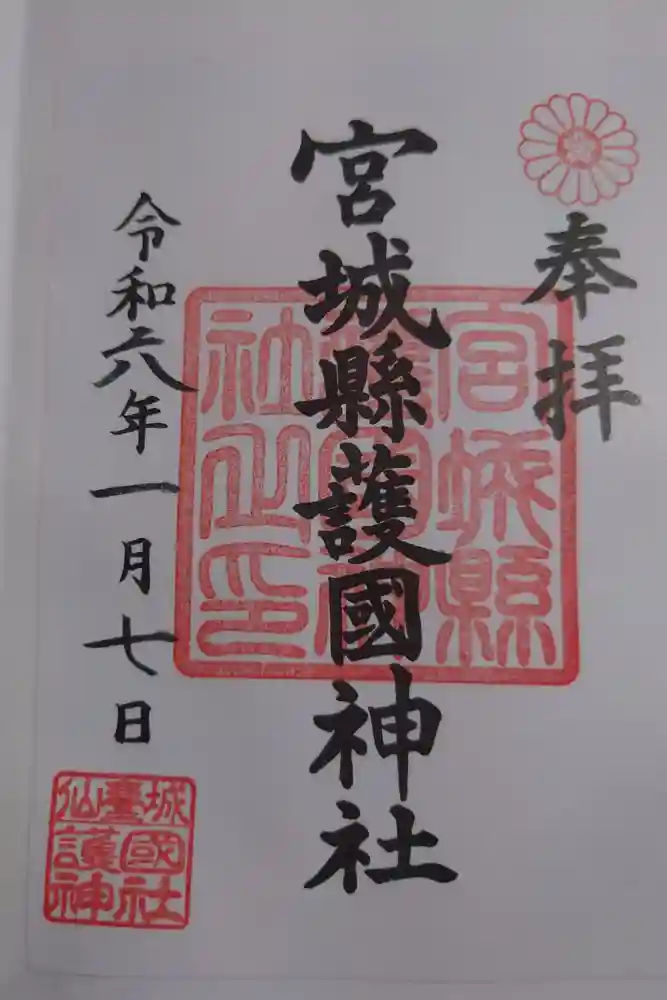 奉拝
宮城縣護國神社
宮城縣
護國神
社之印
令和六年一月七日
仙臺城
護國
神社